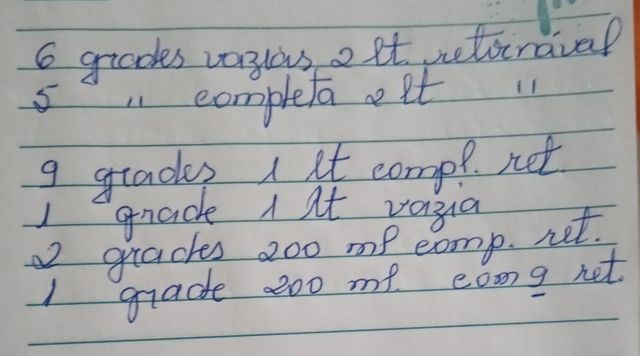 6 grades vazias 2 lt. retornável
5 " completa 2 lt "
9 grades 1 lt compl. ret.
1 grade 1 lt vazia
2 grades 200 ml comp. ret.
1 grade 200 ml. com 9 ret.